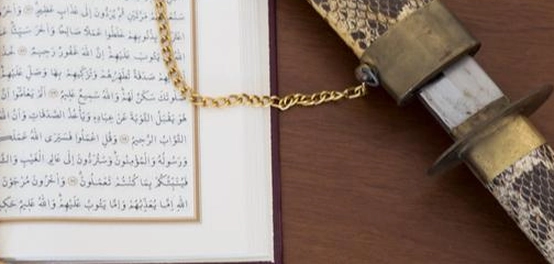 سَنُعَذِّبُهُم مَّرَّتَيْنِ ثُمَّ يُرَدُّونَ إِلَىٰ عَذَابٍ عَظِيمٍ
بِذُنُوبِهِمْ خَلَطُوا عَمَلًا صَالِحًا وَآخَرَ سَيِّئًا
يَتُوبَ عَلَيْهِمْ إِنَّ اللَّهَ غَفُورٌ رَّحِيمٌ
صَدَقَةً تُطَهِّرُهُمْ وَتُزَكِّيهِم بِهَا وَصَلِّ عَلَيْهِمْ
صَلَاتَكَ سَكَنٌ لَّهُمْ وَاللَّهُ سَمِيعٌ عَلِيمٌ أَلَمْ يَعْلَمُوا أَنَّ
هُوَ يَقْبَلُ التَّوْبَةَ عَنْ عِبَادِهِ وَيَأْخُذُ الصَّدَقَاتِ وَأَنَّ اللَّهَ
التَّوَّابُ الرَّحِيمُ وَقُلِ اعْمَلُوا فَسَيَرَى اللَّهُ عَمَلَكُمْ
وَرَسُولُهُ وَالْمُؤْمِنُونَ وَسَتُرَدُّونَ إِلَىٰ عَالِمِ الْغَيْبِ
فَيُنَبِّئُكُم بِمَا كُنتُمْ تَعْمَلُونَ وَآخَرُونَ مُرْجَوْنَ
اللَّهِ إِمَّا يُعَذِّبُهُمْ وَإِمَّا يَتُوبُ عَلَيْهِمْ وَاللَّهُ عَلِيمٌ حَكِيمٌ